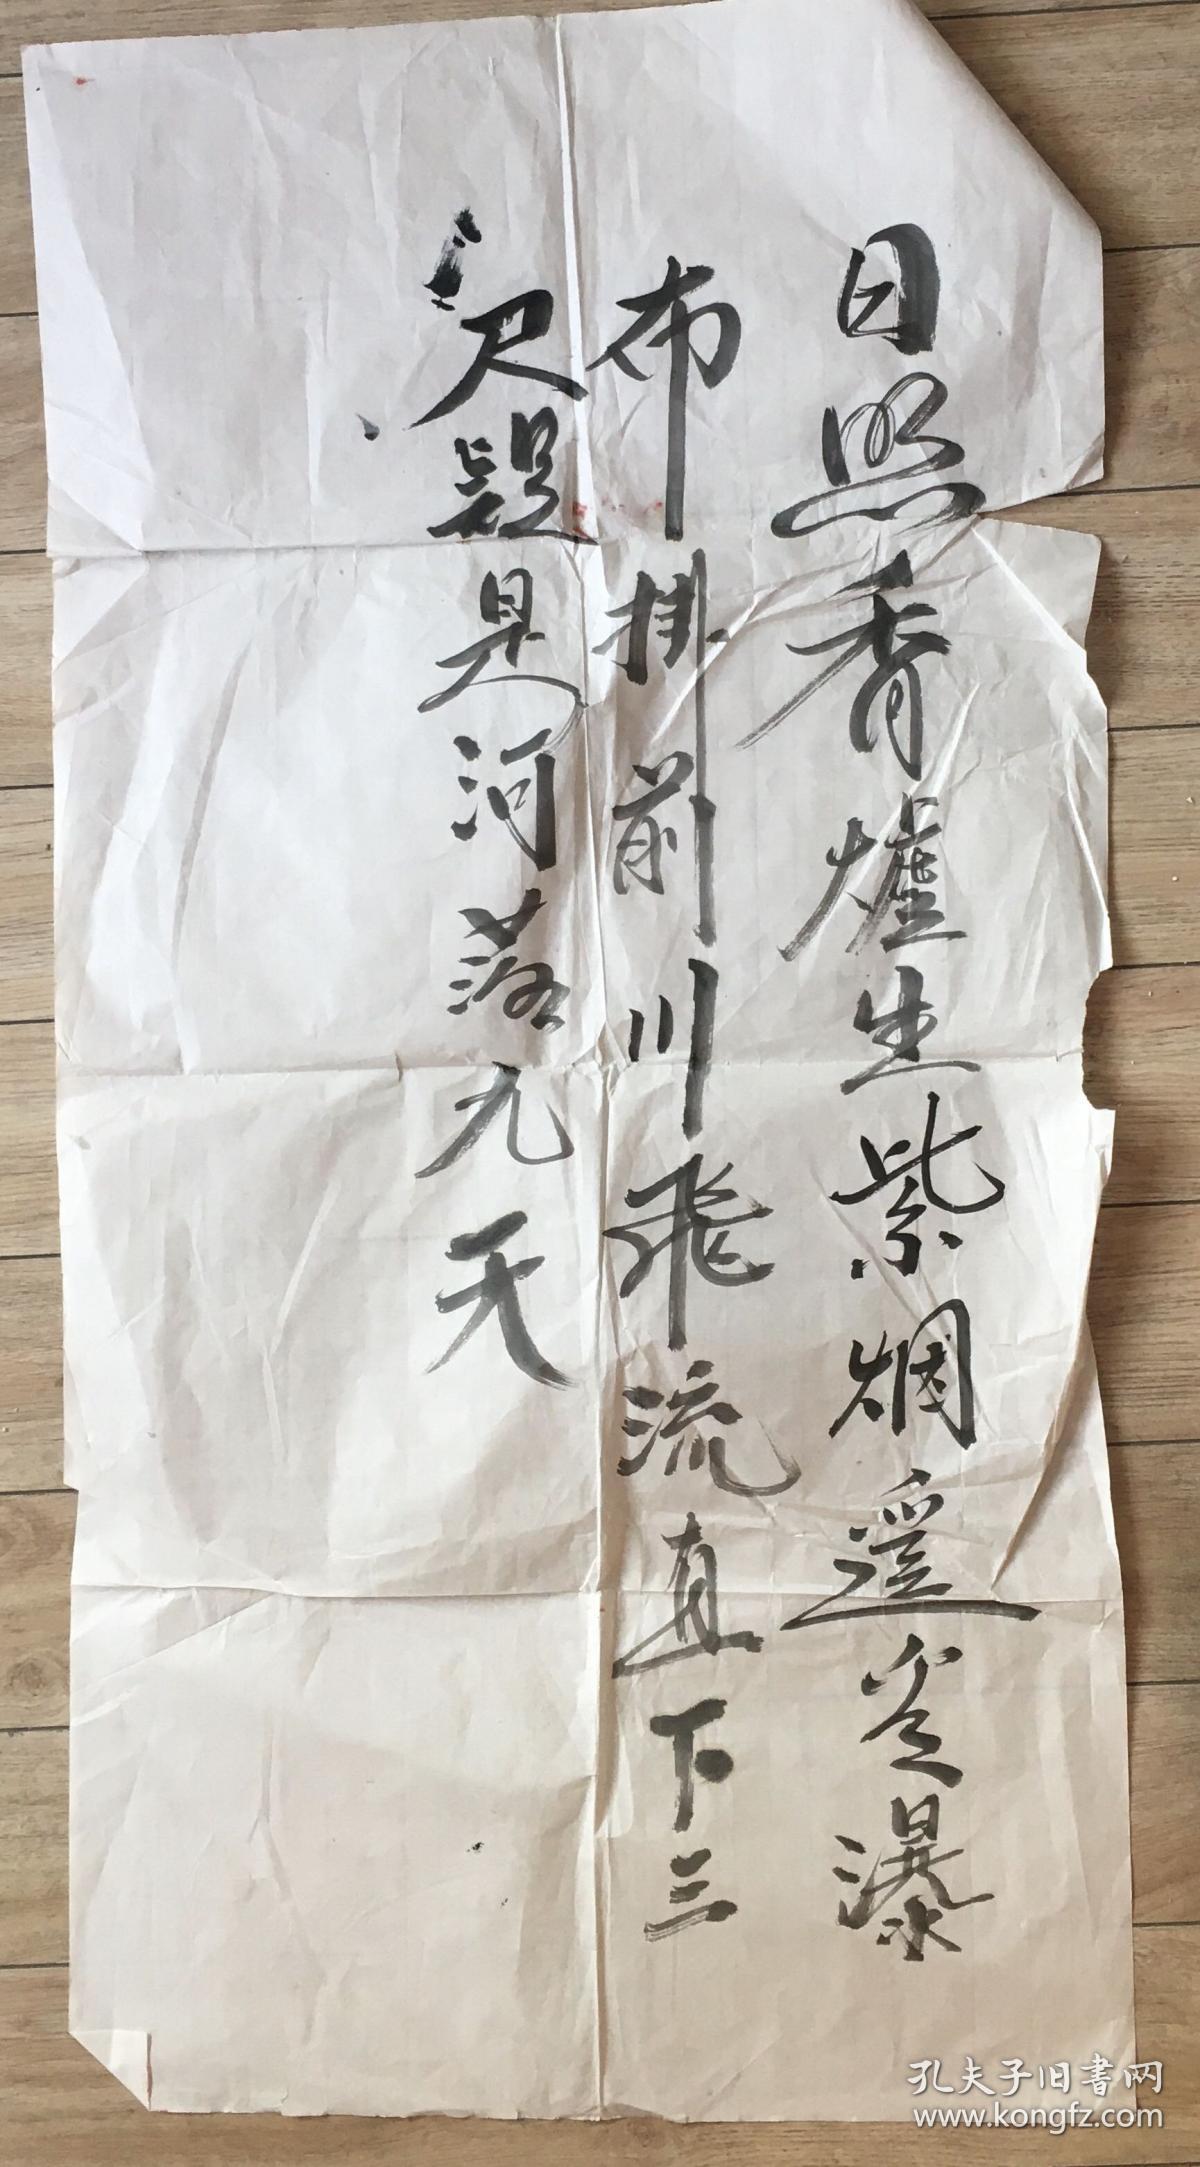 日照香爐生紫烟遥看瀑
布掛前川飛流直下三
尺疑是河落九天
孔夫子旧書网
www.kongfz.com